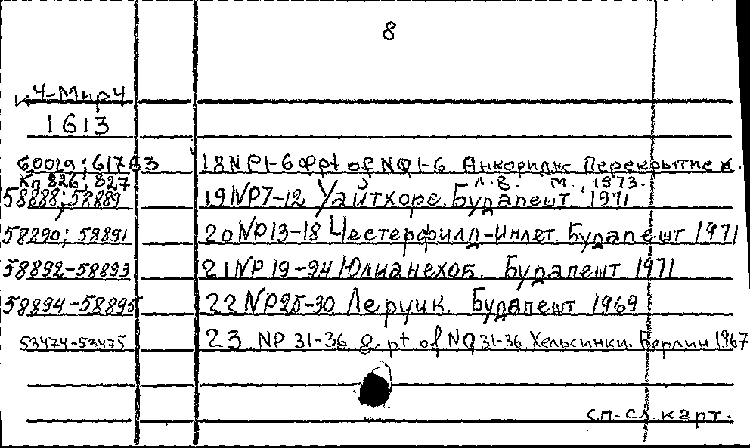 8
4-Мир4
1613
60029; 61763 18 NP1-6 & pt of NQ1-6 Анкоридж Перекрытие к.
Кд 826; 827 л.в. М., 1973.
58888; 58889 19 NP7-12 Уайтхорс. Будапешт 1971
58890; 58891 20 NP13-18 Честерфилд-Инлет. Будапешт 1971
58892-58893 21 NP 19-24 Юлианехоб. Будапешт 1971
58894-58895 22 NP25-30 Леруик. Будапешт 1969
53474-53475 23 NP 31-36 & pt of NQ31-36 Хельсинки Берлин 1967
сл. карт.